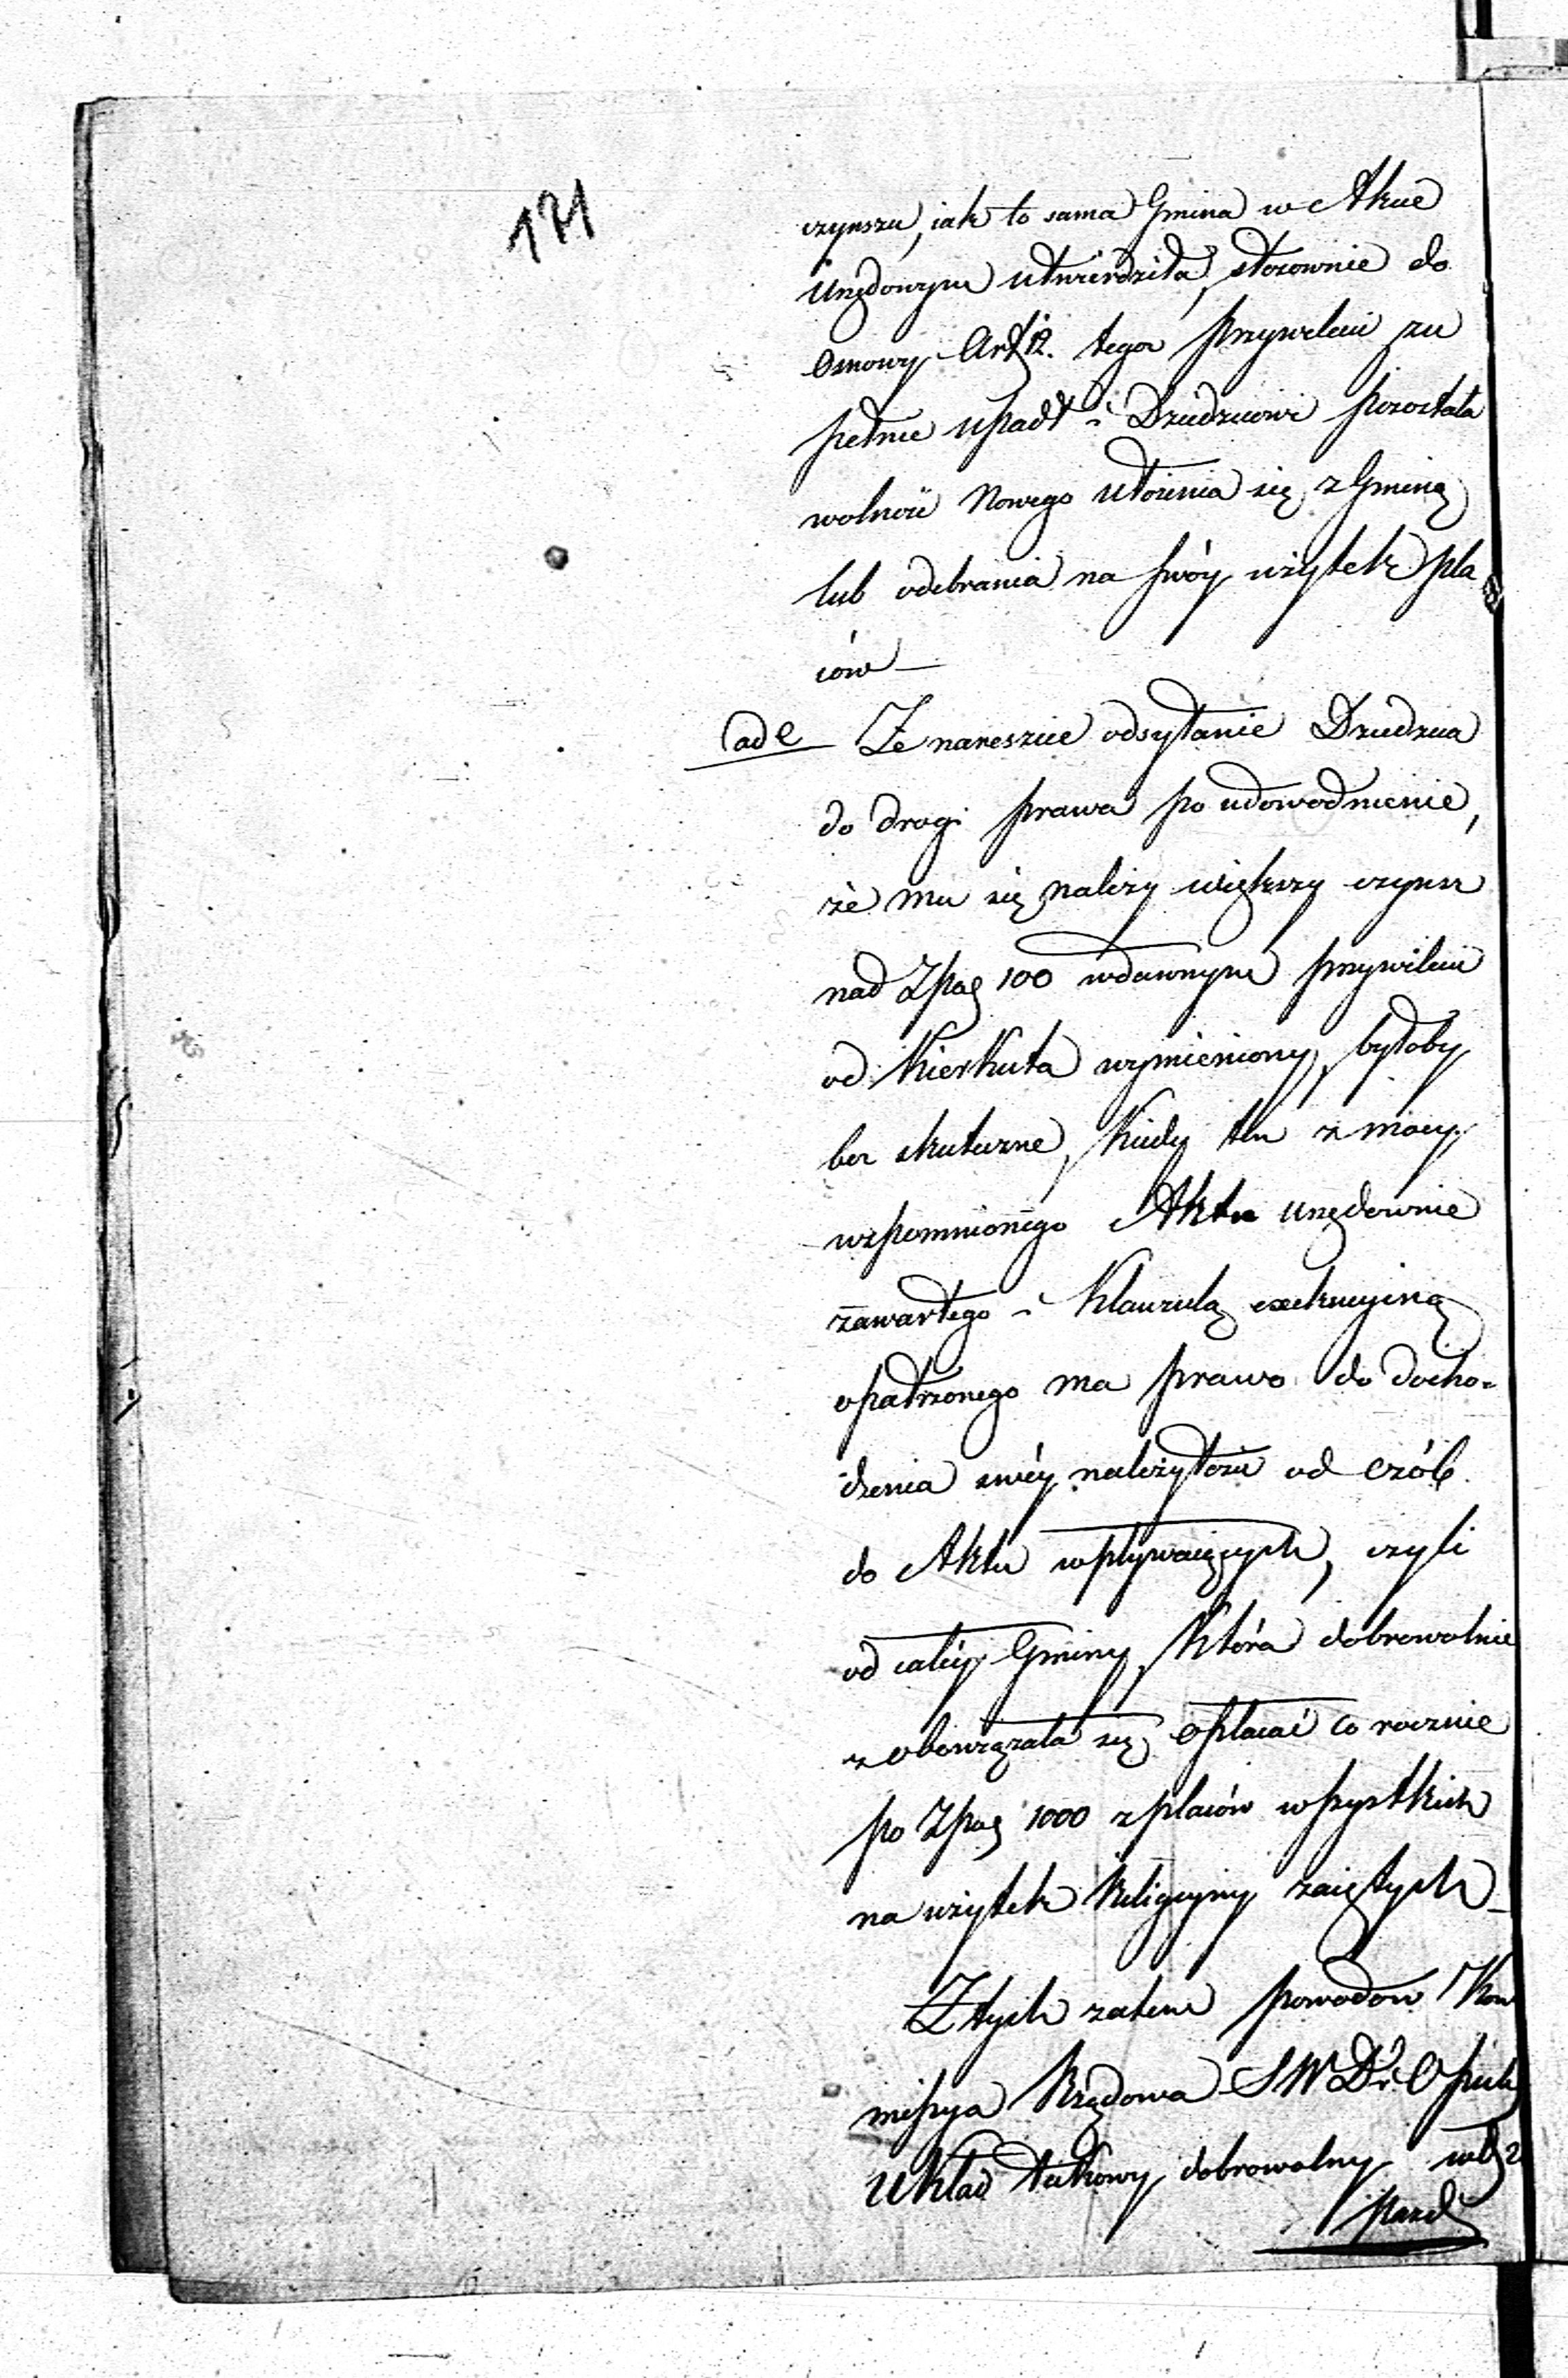 171
czynszu, iak to sama Gmina w Akcie
Urzędowym utwierdziła, stosownie do
Osnowy Art 12. tegoż Przywileiu zu
pełnie upadł i Dziedzicowi pozostała
wolność Nowego Ułożenia się z Gminą
lub odebrania na swóy użytek pla
ców —
ad e Że nareszcie odsyłanie Dziedzica
do drogi prawa po udowodnienie,
że mu się należy większy czynsz
nad Zpag 100 w dawnym przywileiu
od Kierkuta wymieniony, byłoby
bez skuteczne, Kiedy ten z mocy
wspomnionego Aktu urzędownie
zawartego i Klauzulą exekucyiną
opatrzonego ma prawo do docho-
dzenia swéy należytości od Osób
do Aktu wpływaiących, czyli
od całéy Gminy, Która dobrowolnie
zobowiązała się opłacać co rocznie
po Zpag 1000 z placów wszystkich
na użytek Religiyny zaiętych —
Z tych zatem powodów Kom
missya Rządowa S W D i O
Układ takowy dobrowolny